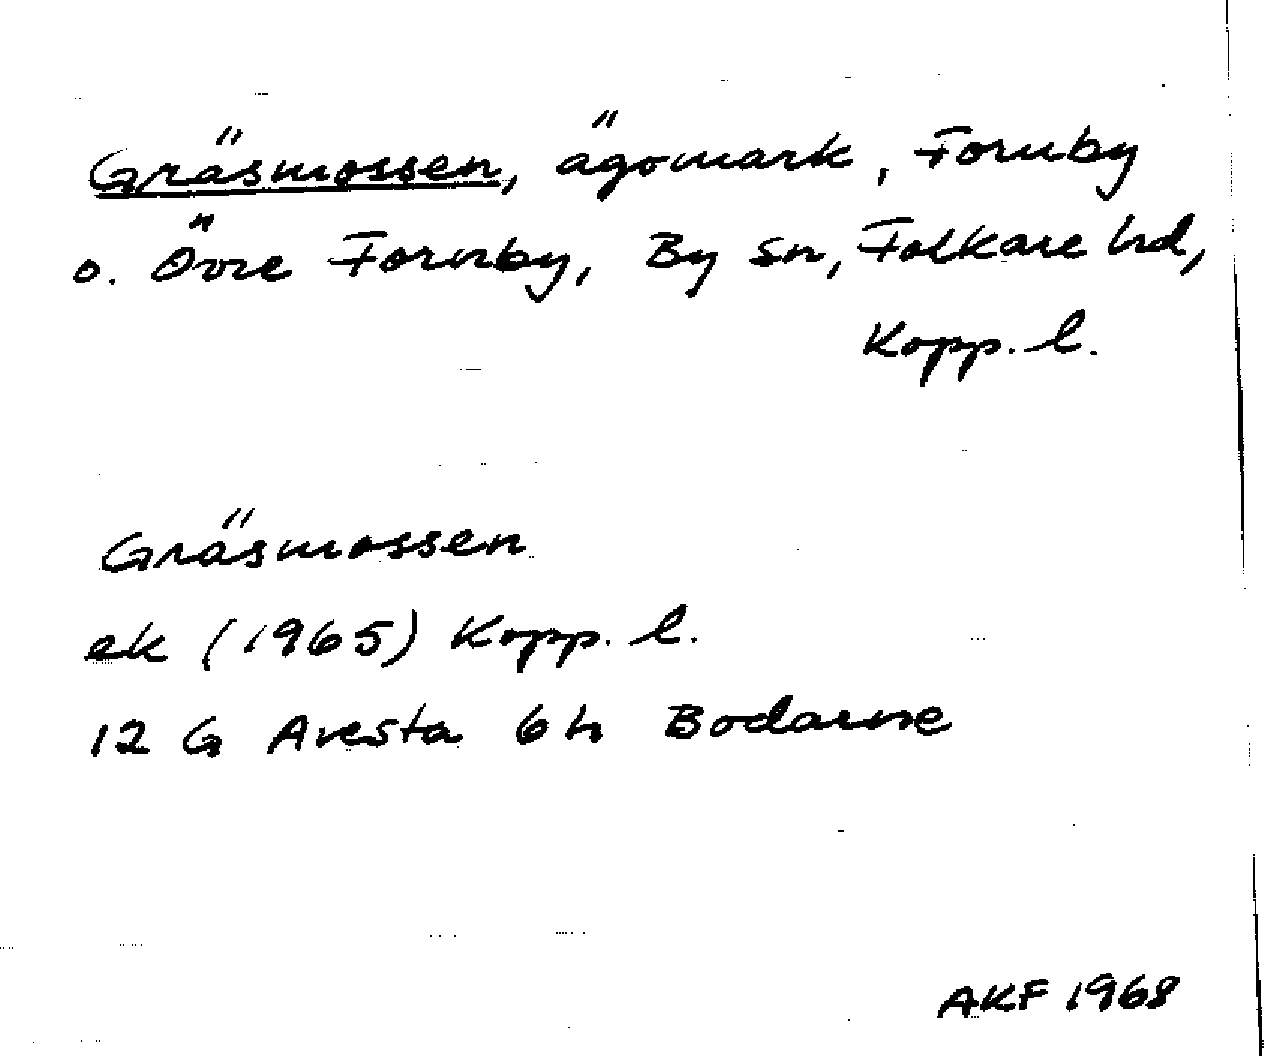 Gräsmossen, ägomark, Fornby
o. Övre Fornby, By sn, Folkare hd,
Kopp. l.
Gräsmossen
ek (1965) Kopp. l.
12 G Avesta 6 h Bodarne
AKF 1968